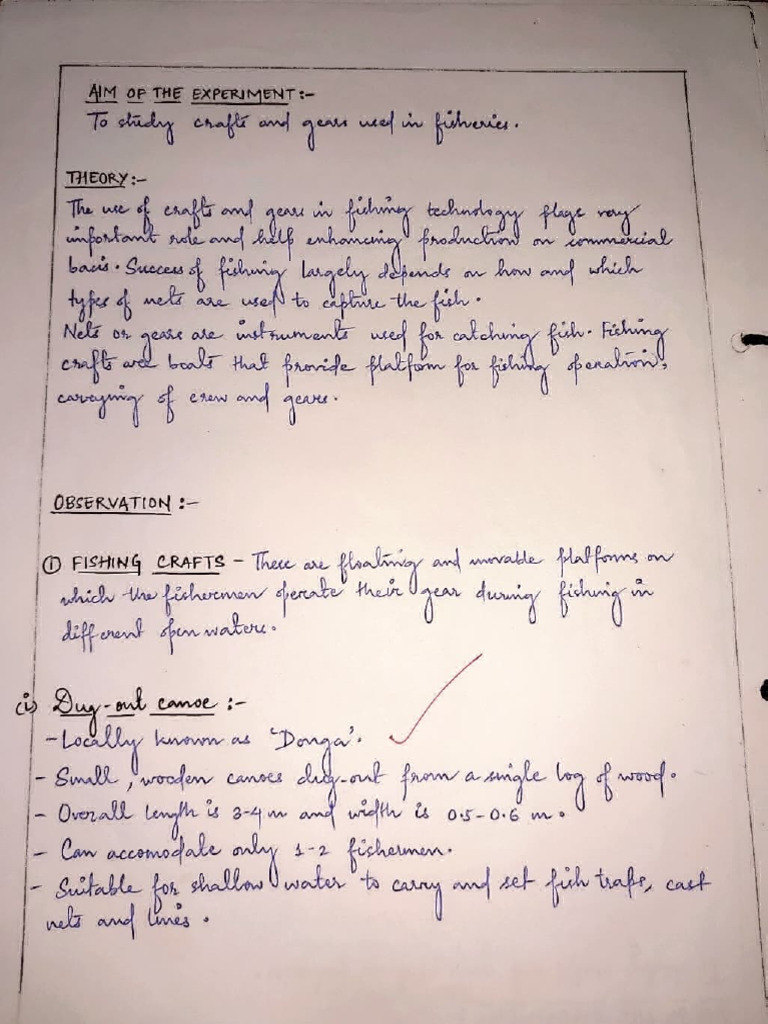 AIM OF THE EXPERIMENT:-
To study crafts and gears used in fisheries.
THEORY:-
The use of crafts and gears in fishing technology plays very
important role and help enhancing production on commercial
basis. Success of fishing largely depends on how and which
types of nets are used to capture the fish.
Nets or gears are instruments used for catching fish. Fishing
crafts are boats that provide platform for fishing operation,
carrying of crew and gears.
OBSERVATION :-
① FISHING CRAFTS - These are floating and movable platforms on
which the fishermen operate their gear during fishing in
different open waters.
(i) Dug-out canoe :-
- Locally known as 'Donga'.
- Small, wooden canoes dug-out from a single log of wood.
- Overall length is 3-4 m and width is 0.5-0.6 m.
- Can accomodate only 1-2 fishermen.
- Suitable for shallow water to carry and set fish traps, cast
nets and lines.